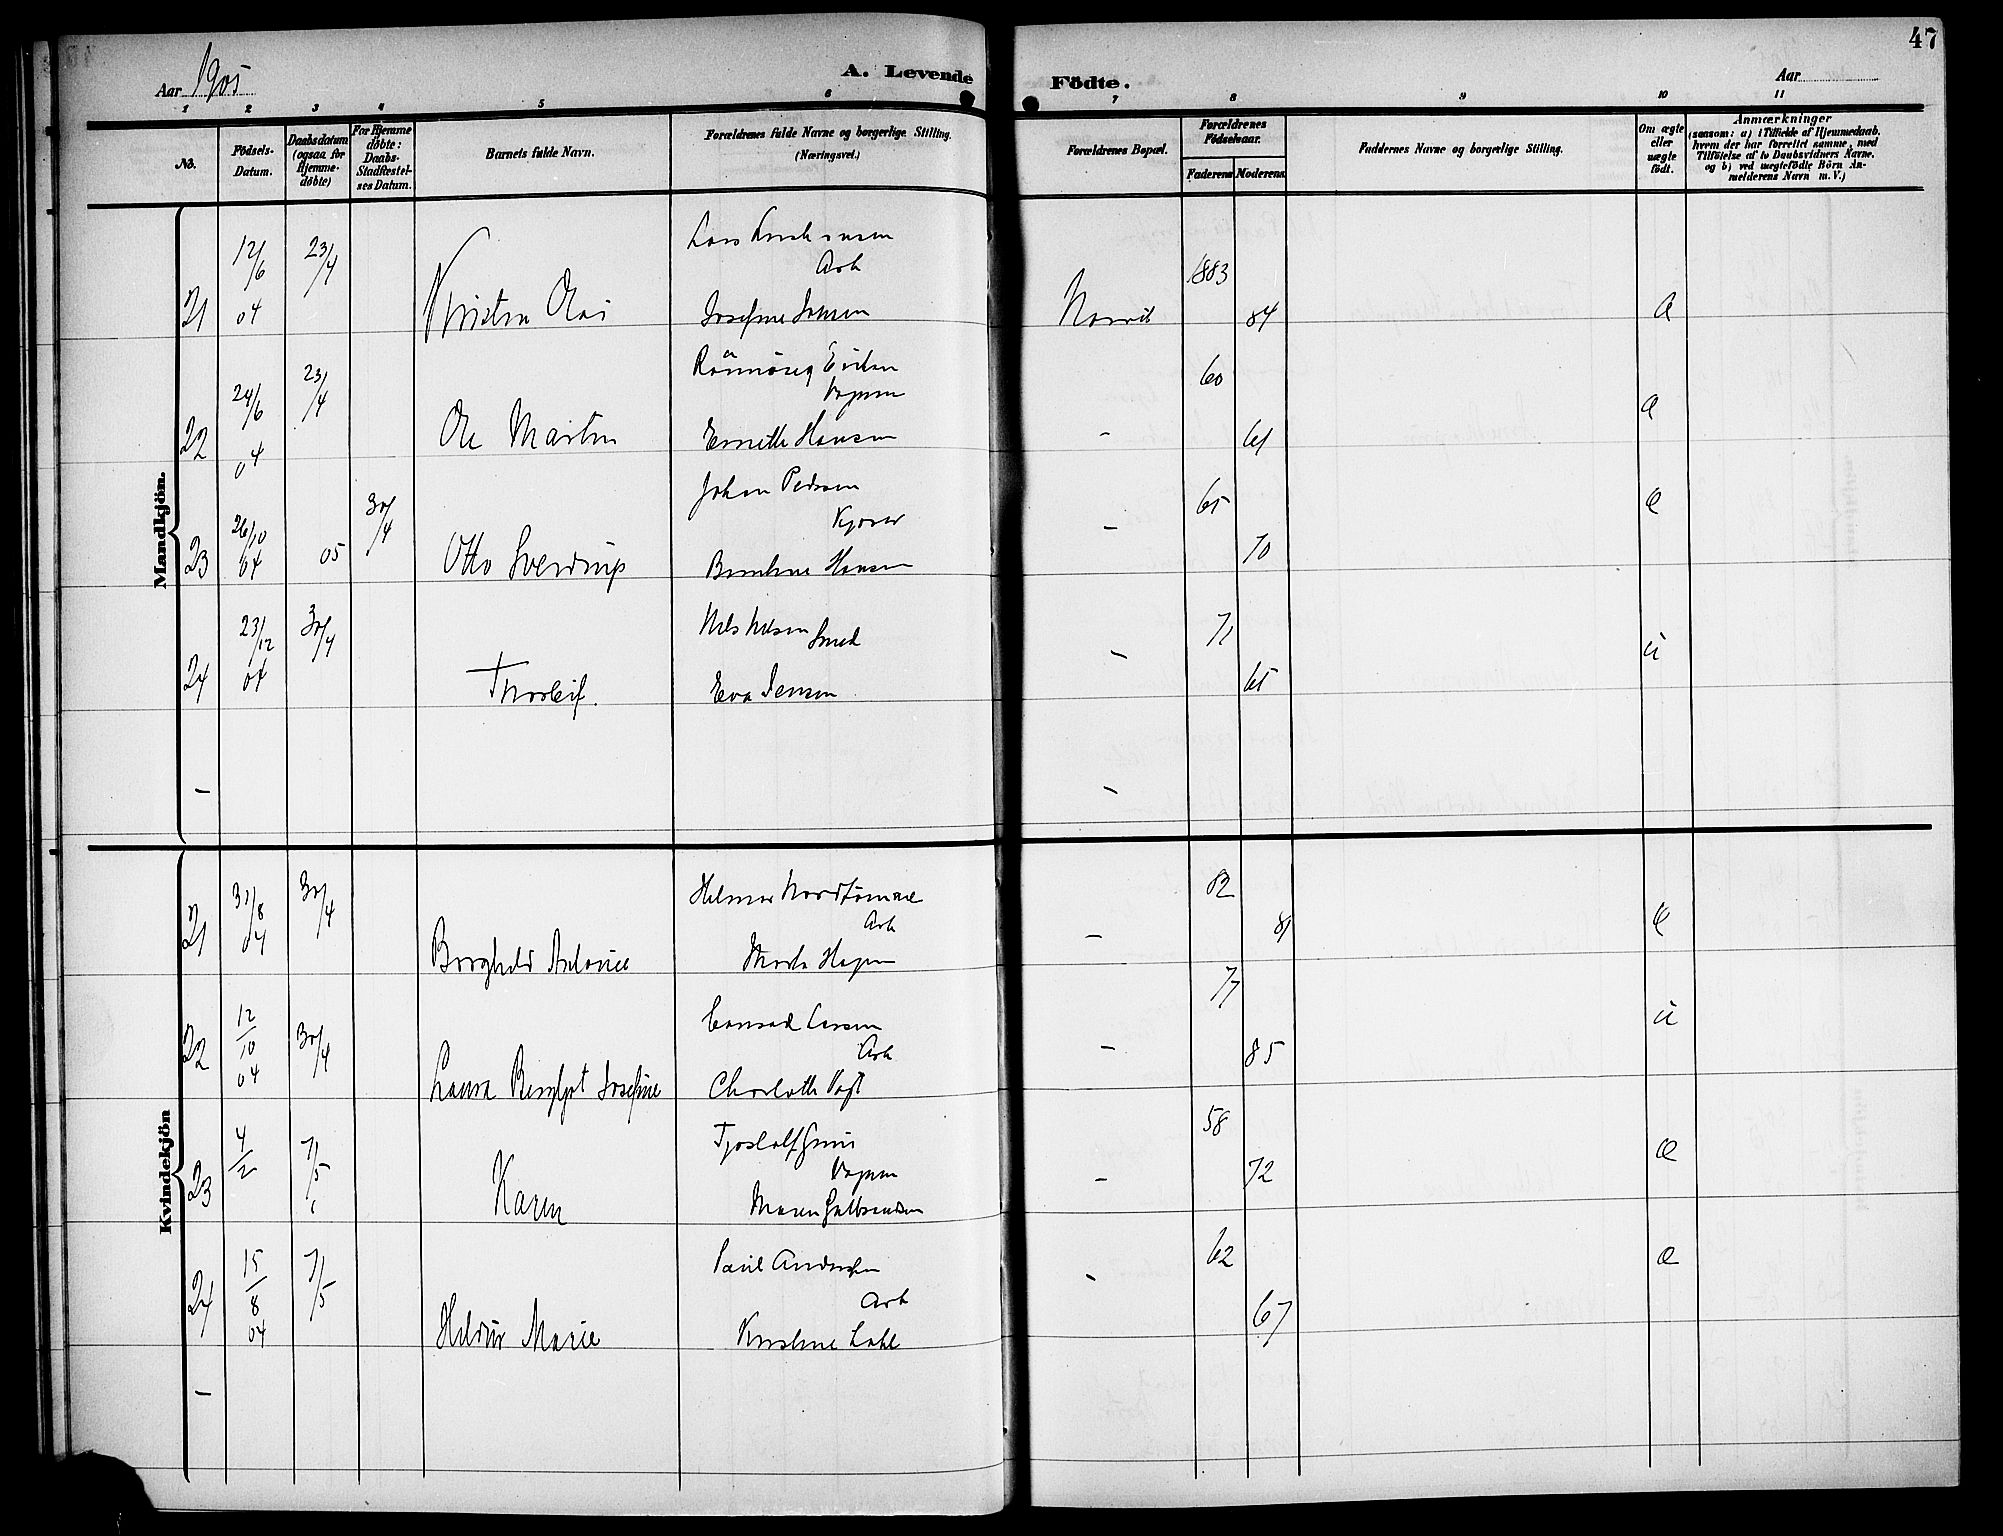 47
Aar 1905
A. Levende
Födte.
Aar
1 2 3 4 5 6 7 8 9 10 11
No.
Födsels-Datum.
Daabsdatum (ogsaa for Hjemme-döbte)
For Hjemme döbte: Daabs-Stadfestel-ses Datum.
Barnets fulde Navn.
Forældrenes fulde Navne og borgerlige Stilling. (Næringsvei.)
Forældrenes Bopæl.
Forældrenes Födselsaar.
Faderens Moderens
Faddernes Navne og borgerlige Stilling.
Om ægte eller uægte födt.
Anmærkninger
(saasom: a) i Tilfælde af Hjemmedaab, hvem der har forrettet samme, med Tilföielse af to Daabsvidners Navne, og b) ved uægtefödte Börn An-melderens Navn m. V.)
Mandkjön.
21 12/6 04 23/4
Arb
Josefine Jensen
1883 84
22 24/6 04 23/4 Ole Martin
Vognm
Ernette Hansen
- 60 61
23 26/10 04 05 30/4 Otto Sverdrup
Johan Pedersen
Kjører
Hansen
- 65 70
24 23/12 04 30/4 Thorleif.
Nils Nilsen Smed
Eva Jensen
- 71 65
-
-
Kvindekjön
21 31/8 04 30/4 Borghild
Arb
Hagen
- 82 81
22 12/10 04 30/4 Laura Bergljot Josefine
Conrad Larsen
Arb
Charlotte Vogt
- 77 85 u
23 4/2 7/5 Karen
Vognm
Maren Gulbrandsen
- 58 72 æ
24 15/8 04 7/5 Hildur Marie
Paul Andersen
Arb
Kristine Dahl
- 62 67 æ
-